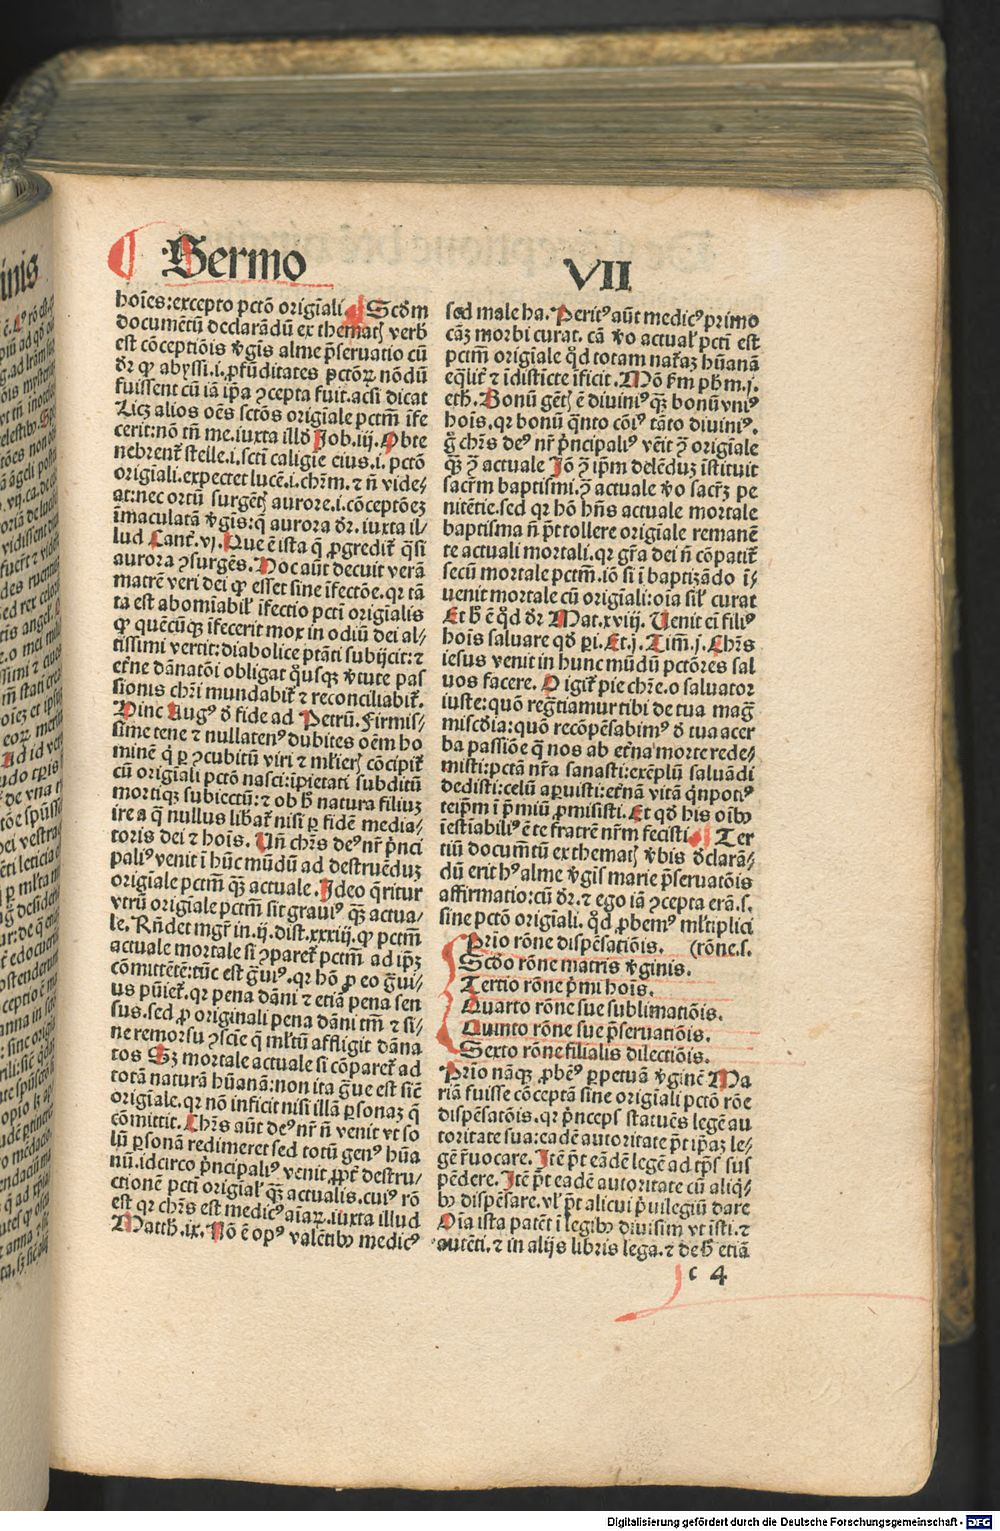 Sermo
VII
hoīes:excepto pctō origīali. Scd̄m
documētū declarādū ex themat̄ꝭ verb̄
est cōceptiōis v̄gīs alme p̄seruatio cū
dr̄ ꝙ abyssi.i.ꝓfūditates pctōꝝ nōdū
fuissent cū iā ip̄a ꝯcepta fuit.acsi dicat
Licꝫ alios oēs sctōs origīale pctm̄ īfe
cerit:nō tn̄ me.iuxta illd̄ Job.iij. Obte
nebrent̄ stelle.i.scti caligie eius.i.pctō
originali.expectet lucē.i.chr̄m.⁊ n̄ vide⸗
at:nec ortū surgēt̄ꝭ aurore.i.cōceptōeꝫ
īmaculatā v̄gīs:q̄ aurora dr̄.iuxta il⸗
lud Cant̄.vj. Que ē ista q̄ ꝓgredit̄ q̄si
aurora ꝯsurgēs. Hoc aūt decuit verā
matrē veri dei ꝙ esset sine īfectōe.qr tā
ta est abomīabil̄ īfectio pcti origīalis
ꝙ quēcūqꝫ īfecerit mox in odiū dei al⸗
tissimi vertit:diabolice ptāti subijcit:⁊
et̄ne dānatōi obligat q̄usqꝫ v̄tute pas
sionis chr̄i mundabit̄ ⁊ reconciliabit̄.
Hinc Augꝰ d̄ fide ad Petrū. Firmis⸗
sime tene ⁊ nullatenꝰ dubites oēm ho
minē q̄ ꝑ ꝯcubitū viri ⁊ ml̄ier̄ꝭ cōcipit̄
cū origīali pctō nasci:ip̄ietati subditū
mortiqꝫ subiectū:⁊ ob h̄ natura filiuꝫ
ire a q̄ nullus libat̄ nisi ꝑ fidē media⸗
toris dei ⁊ hoīs. Uñ chr̄s deꝰ nr̄ p̄nci
palꝰ venit ī hūc mūdū ad destruēduꝫ
origīale pctm̄ qꝫ̄ actuale. Ideo q̄ritur
vtrū origīale pctm̄ sit grauiꝰ qꝫ̄ actua⸗
le. Rn̄det mgr̄ in.ij.dist.xxxiij.ꝙ pctm̄
actuale mortale si ꝯparet̄ pctm̄ ad ip̄ꝫ
cōmittētē:tūc est ḡuiꝰ.qr hō ꝓ eo ḡui⸗
us pūiet̄.qr pena dāni ⁊ etiā pena sen
sus.sed ꝓ originali pena dāni tm̄ ⁊ si⸗
ne remorsu ꝯscīe q̄ ml̄tū affligit dāna
tos Sꝫ mortale actuale si cōparet̄ ad
totā naturā hūanā:non ita ḡue est sic̄
origīale.qr nō inficit nisi illā ꝑsonaꝫ q̄
cōmittit. Chr̄s aūt deꝰ nr̄ n̄ venit vt so
lū ꝑsonā redimeret sed totū genꝰ hūa
nū.idcirco p̄ncipaliꝰ venit ꝓpt̄ destru⸗
ctionē pcti origīal̄ qꝫ̄ actualis.cuiꝰ rō
est qr chr̄s est medicꝰ aīaꝝ.iuxta illud
Matth.ix. Nō ē opꝰ valētibꝰ medicꝰ
sed male ha. Peritꝰ aūt medicꝰ primo
cāꝫ morbi curat. cā v̄o actual̄ pcti est
pctm̄ origīale q̄d totam nat̄aꝫ hūanā
eq̄lit̄ ⁊ īdistīcte īficit. Mō s̄m ph̄m.j.
eth. Bonū gēt̄ꝭ ē diuiniꝰ qꝫ̄ bonū vniꝰ
hoīs.qr bonū q̄nto cōiꝰ tāto diuiniꝰ.
g̊ chr̄s deꝰ nr̄ p̄ncipaliꝰ vēit ꝯ̄ origīale
qꝫ̄ ꝯ̄ actuale Jō ꝯ̄ ip̄m delēduꝫ īstituit
sacr̄m baptismi.ꝯ̄ actuale v̄o sacr̄ꝫ pe
nitētie.sed qr hō hn̄s actuale mortale
baptisma n̄ pt̄ tollere origīale remanē
te actuali mortali.qr gr̄a dei n̄ cōpatit̄
secū mortale pctm̄.iō si ī baptizādo ī⸗
uenit mortale cū origīali:oīa sil̄ curat
Et h̄ ē q̄d dr̄ Mat.xviij. Uenit ei filiꝰ
hoīs saluare qd̄ ꝑi. Et.j. Tim̄.j. Chr̄s
iesus venit in hunc mūdū pctōres sal
uos facere. O igit̄ pie chr̄e.o saluator
iuste:quō reḡtiamur tibi de tua maḡ
misc̄dia:quō recōpēsabimꝰ d̄ tua acer
ba passiōe q̄ nos ab et̄na morte rede⸗
misti:pctā nr̄a sanasti:exēplū saluādi
dedisti:celū aꝑuisti:et̄nā vitā q̄npotiꝰ
teip̄m ī p̄miū ꝓmisisti. Et qd̄ his oībꝰ
īestīabiliꝰ ē te fratrē nr̄m fecisti. Ter
tiū documētū ex themat̄ꝭ v̄bis d̄clarā⸗
dū erit hꝰ alme v̄gīs marie p̄seruatōis
affirmatio:cū dr̄.⁊ ego iā ꝯcepta erā.s.
sine pctō origīali. q̄d ꝓbemꝰ ml̄tiplici
Prīo rōne dispēsatiōis. (rōne.s.
Scd̄o rōne matris v̄ginis.
Tertio rōne p̄mi hoīs.
Quarto rōne sue sublimatiōis.
Quinto rōne sue p̄seruatiōis.
Sexto rōne filialis dilectiōis.
Prīo nāqꝫ ꝓbēꝰ ꝑpetuā v̄ginē Ma
riā fuisse cōceptā sine origīali pctō rōe
dispēsatōis.qr p̄nceps statuēs legē au
toritate sua:eadē autoritate pt̄ ip̄aꝫ le⸗
gē r̄uocare. Itē pt̄ eādē legē ad tp̄s sus
pēdere. Itē pt̄ eadē autoritate cū aliq̄⸗
bꝰ dispēsare.vl̄ pt̄ alicui p̄uilegiū dare
Oīa ista patēt ī legibꝰ diuisim vt īsti.⁊
autēti.⁊ in alijs libris lega.⁊ de h̄ etiā
c 4
Digitalisierung gefördert durch die Deutsche Forschungsgemeinschaft - DFG